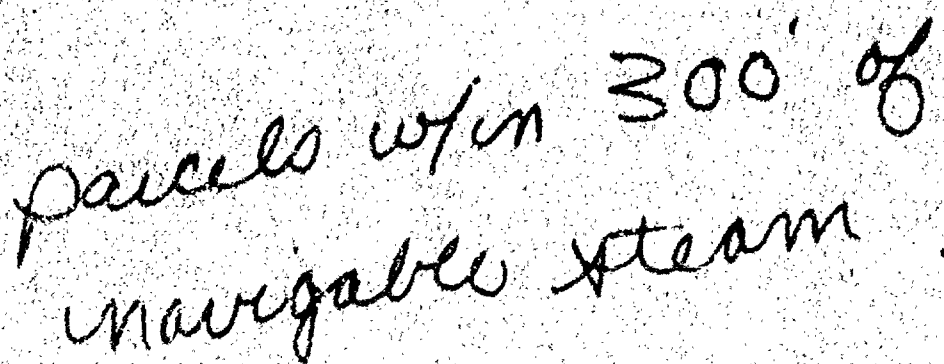 parcels w/in 300' of
navigable steam